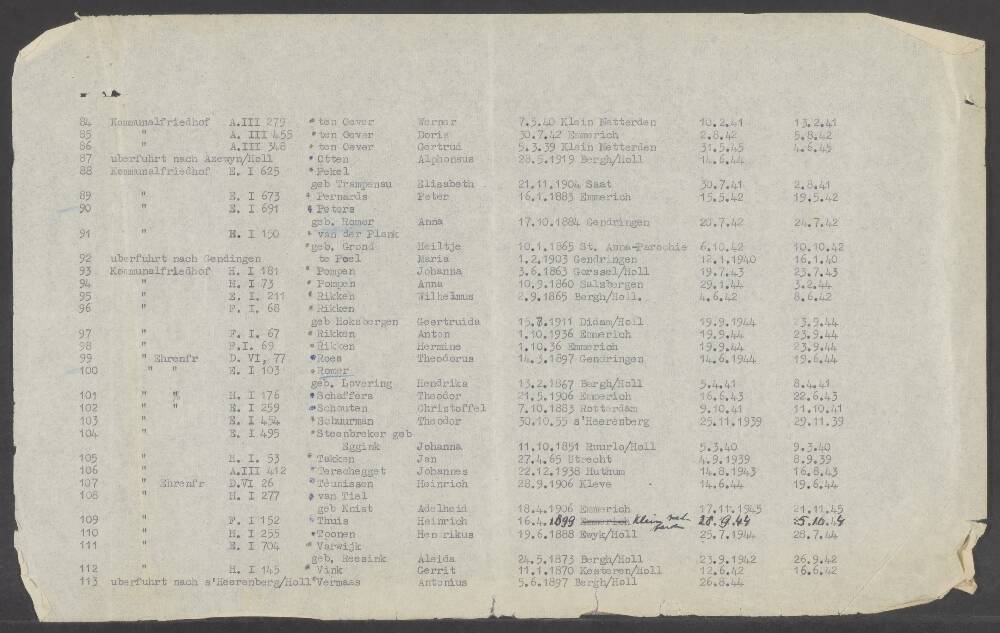 84 Kommunalfriedhof A.III 279 ten Oever Werner 7.5.40 Klein Netterden 10.2.41 13.2.41
85 " A. III 455 ten Oever Doris 30.7.42 Emmerich 2.8.42 5.8.42
86 " A.III 348 ten Oever Gertrud 5.3.39 Klein Netterden 31.5.45 4.6.45
87 uberfuhrt nach Azewyn/Holl Otten Alphonsus 28.5.1919 Bergh/Holl 14.6.44
88 Kommunalfriedhof E. I 625 Pekel
geb Trampenau Elisabeth 21.11.1904 Saat 30.7.41 2.8.41
89 " E. I 673 Pernards Peter 16.1.1883 Emmerich 15.5.42 19.5.42
90 " E. I 691 Peters
geb. Romer Anna 17.10.1884 Gendringen 20.7.42 24.7.42
91 " H. I 150 van der Plank
geb. Grond Heiltje 10.1.1865 St. Anna-Parochie 6.10.42 10.10.42
92 uberfuhrt nach Gendingen te Poel Maria 1.2.1903 Gendringen 12.1.1940 16.1.40
93 Kommunalfriedhof H. I 181 Pompen Johanna 3.6.1863 Gorssel/Holl 19.7.43 23.7.43
94 " H. I 73 Pompen Anna 10.9.1860 Salzbergen 29.1.44 3.2.44
95 " E. I. 211 Rikken Wilhelmus 2.9.1865 Bergh/Holl. 4.6.42 8.6.42
96 " F. I. 68 Rikken
geb Hoksbergen Geertruida 15.8.1911 Didam/Holl 19.9.1944 23.9.44
97 " F. I. 67 Rikken Anton 1.10.1936 Emmerich 19.9.44 23.9.44
98 " F.I. 69 Rikken Hermine 1.10.36 Emmerich 19.9.44 23.9.44
99 " Ehrenfr D. VI, 77 Roes Theodorus 14.3.1897 Gendringen 14.6.1944 19.6.44
100 " " E. I 103 Romer
geb. Lovering Hendrika 13.2.1867 Bergh/Holl 5.4.41 8.4.41
101 " " H. I 176 Schaffers Theodor 21.5.1906 Emmerich 16.6.43 22.6.43
102 " " E. I 259 Schouten Christoffel 7.10.1883 Rotterdam 9.10.41 11.10.41
103 " E. I 454 Schuurman Theodor 30.10.55 s'Heerenberg 25.11.1939 29.11.39
104 " E. I 495 Steenbreker geb
Eggink Johanna 11.10.1851 Ruurlo/Holl 5.3.40 9.3.40
105 " H. I. 53 Takken Jan 27.4.65 Utrecht 4.9.1939 8.9.39
106 " A.III 412 Terschegget Johannes 22.12.1938 Huthum 14.8.1943 16.8.43
107 " Ehrenfr D.VI 26 Teunissen Heinrich 28.9.1906 Kleve 14.6.44 19.6.44
108 " H. I 277 van Tiel
geb Knist Adelheid 18.4.1906 Emmerich 17.11.1945 21.11.45
109 " F. I 152 Thuis Heinrich 16.4.1899 Emmerich Klein Netterden 28.9.44 5.10.44
110 " H. I 255 Toonen Henrikus 19.6.1888 Ewyk/Holl 25.7.1944 28.7.44
111 " E. I 704 Varwijk
geb. Reesink Aleida 24.5.1873 Bergh/Holl 23.9.1942 26.9.42
112 " H. I 145 Vink Gerrit 11.1.1870 Kesteren/Holl 12.6.42 16.6.42
113 uberfuhrt nach s'Heerenberg/Holl Vermaas Antonius 5.6.1897 Bergh/Holl 26.8.44